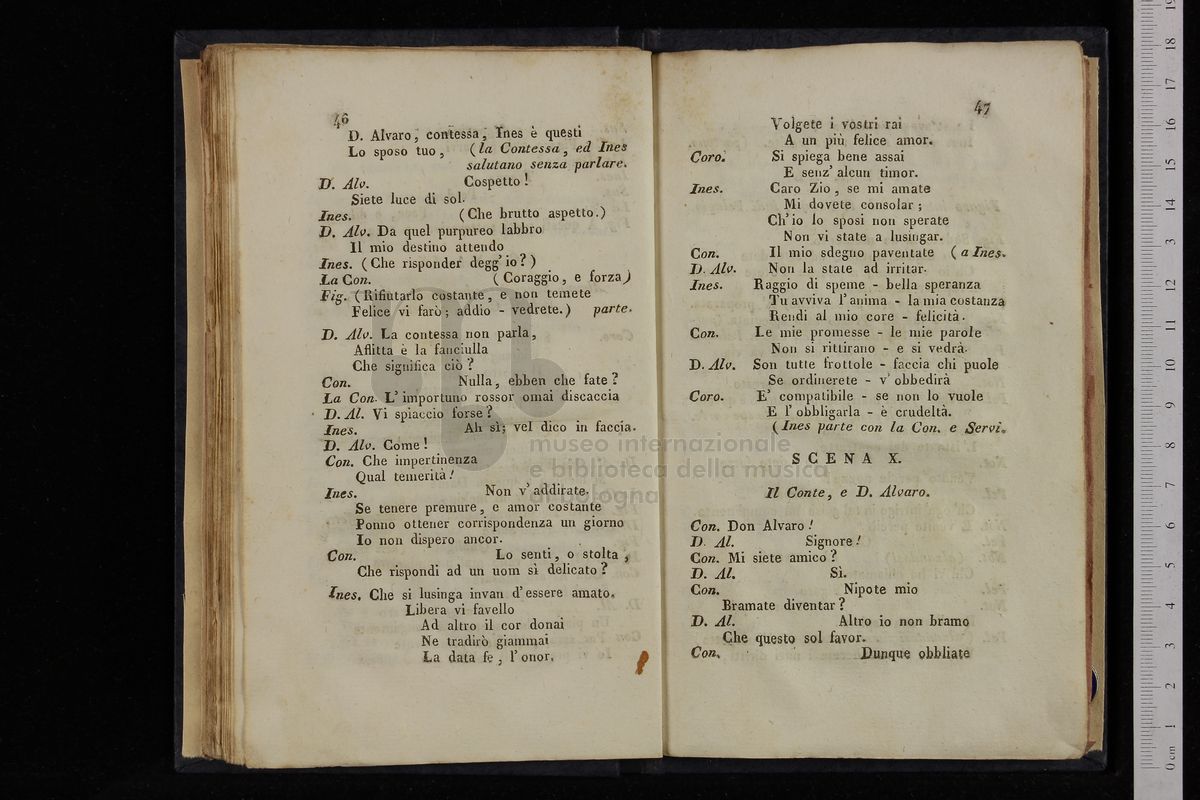 46
D. Alvaro, contessa, Ines è questi
Lo sposo tuo, (la Contessa, ed Ines
salutano senza parlare.
D. Alv. Cospetto!
Siete luce di sol.
Ines. (Che brutto aspetto.)
D. Alv. Da quel purpureo labbro
Il mio destino attendo
Ines. (Che risponder degg'io?)
La Con. (Coraggio, e forza)
Fig. (Rifiutarlo costante, e non temete
Felice vi farò; addio - vedrete.) parte.
D. Alv. La contessa non parla,
Aflitta è la fanciulla
Che significa ciò?
Con. Nulla, ebben che fate?
La Con. L'importuno rossor omai discaccia
D. Al. Vi spiaccio forse?
Ines. Ah sì; vel dico in faccia.
D. Alv. Come!
Con. Che impertinenza
Qual temerità!
Ines. Non v'addirate.
Se tenere premure, e amor costante
Ponno ottener corrispondenza un giorno
Io non dispero ancor.
Con. Lo senti, o stolta,
Che rispondi ad un uom sì delicato?
Ines. Che si lusinga invan d'essere amato.
Libera vi favello
Ad altro il cor donai
Ne tradirò giammai
La data fe, l'onor.
47
Volgete i vostri rai
A un più felice amor.
Coro. Si spiega bene assai
E senz'alcun timor.
Ines. Caro Zio, se mi amate
Mi dovete consolar;
Ch'io lo sposi non sperate
Non vi state a lusingar.
Con. Il mio sdegno paventate (a Ines.
D. Alv. Non la state ad irritar.
Ines. Raggio di speme - bella speranza
Tu avviva l'anima - la mia costanza
Rendi al mio core - felicità.
Con. Le mie promesse - le mie parole
Non si rittirano - e si vedrà.
D. Alv. Son tutte frottole - faccia chi puole
Se ordinerete - v'obbedirà
Coro. E' compatibile - se non lo vuole
E l'obbligarla - è crudeltà.
(Ines parte con la Con. e Servi.
SCENA X.
Il Conte, e D. Alvaro.
Con. Don Alvaro!
D. Al. Signore!
Con. Mi siete amico?
D. Al. Sì.
Con. Nipote mio
Bramate diventar?
D. Al. Altro io non bramo
Che questo sol favor.
Con. Dunque obbliate
museo internazionale
e biblioteca della musica
di bologna
0 cm 1 2 3 4 5 6 7 8 9 10 11 12 13 14 15 16 17 18 19